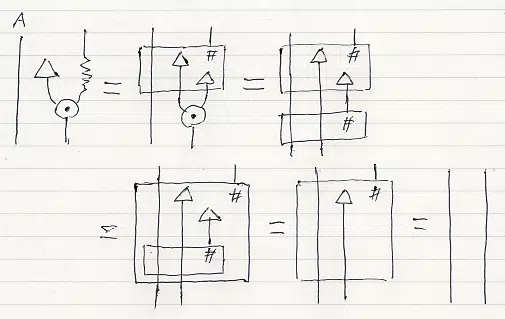 A
# #
= =
#
#
≅ = =
#